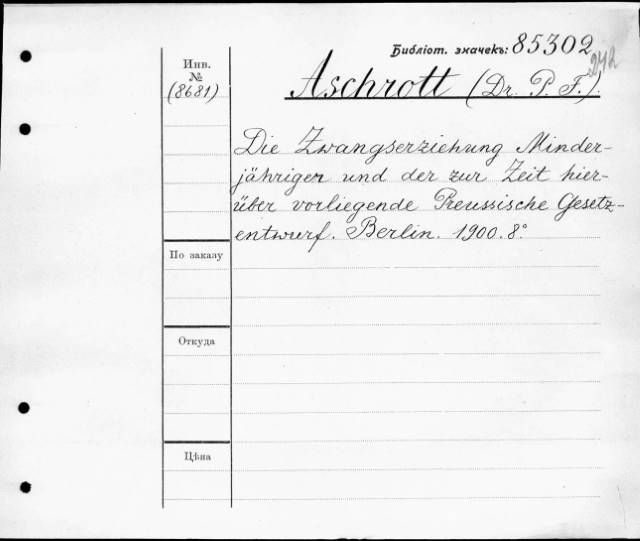 Библіот. значекъ: 85302
242
Инв.
№
(8681)
Aschrott (Dr. P. F.)
Die Zwangserziehung Minder-
jähriger und der zur Zeit hier-
über vorliegende Preussische Gesetz-
entwurf. Berlin. 1900. 8°
По заказу
Откуда
Цѣна